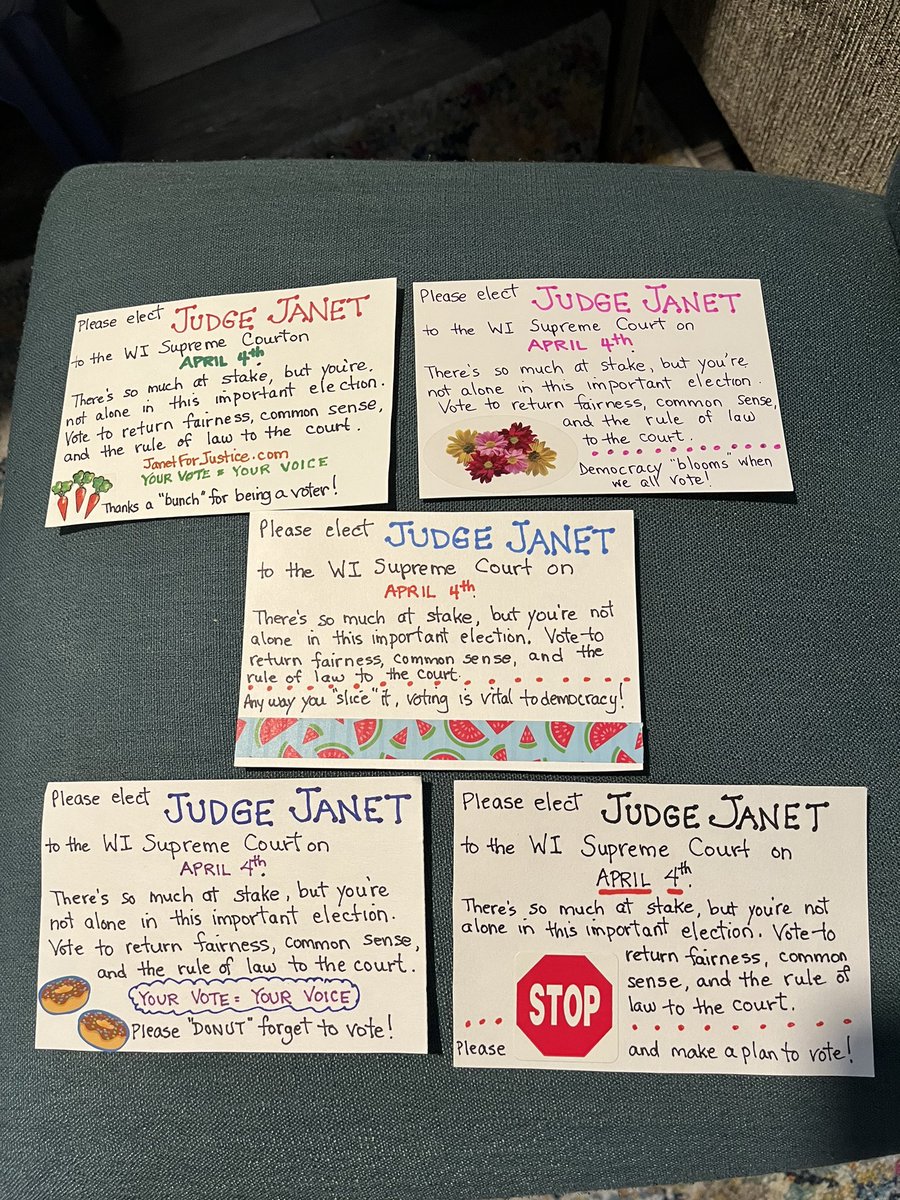 Please elect JUDGE JANET
to the WI Supreme Court on
APRIL 4th.
There's so much at stake, but you're
not alone in this important election.
Vote to return fairness, common sense,
and the rule of law to the court.
JanetForJustice.com
YOUR VOTE = YOUR VOICE
Thanks a "bunch" for being a voter!
Please elect JUDGE JANET
to the WI Supreme Court on
APRIL 4th.
There's so much at stake, but you're
not alone in this important election.
Vote to return fairness, common sense,
and the rule of law
to the court.
Democracy "blooms" when
we all vote!
Please elect JUDGE JANET
to the WI Supreme Court on
APRIL 4th.
There's so much at stake, but you're not
alone in this important election. Vote to
return fairness, common sense, and the
rule of law to the court.
Any way you "slice" it, voting is vital to democracy!
Please elect JUDGE JANET
to the WI Supreme Court on
APRIL 4th.
There's so much at stake, but you're
not alone in this important election.
Vote to return fairness, common sense,
and the rule of law to the court.
YOUR VOTE = YOUR VOICE
Please "DONUT" forget to vote!
Please elect JUDGE JANET
to the WI Supreme Court on
APRIL 4th.
There's so much at stake, but you're not
alone in this important election. Vote to
return fairness, common
sense, and the rule of
law to the court.
Please STOP and make a plan to vote!